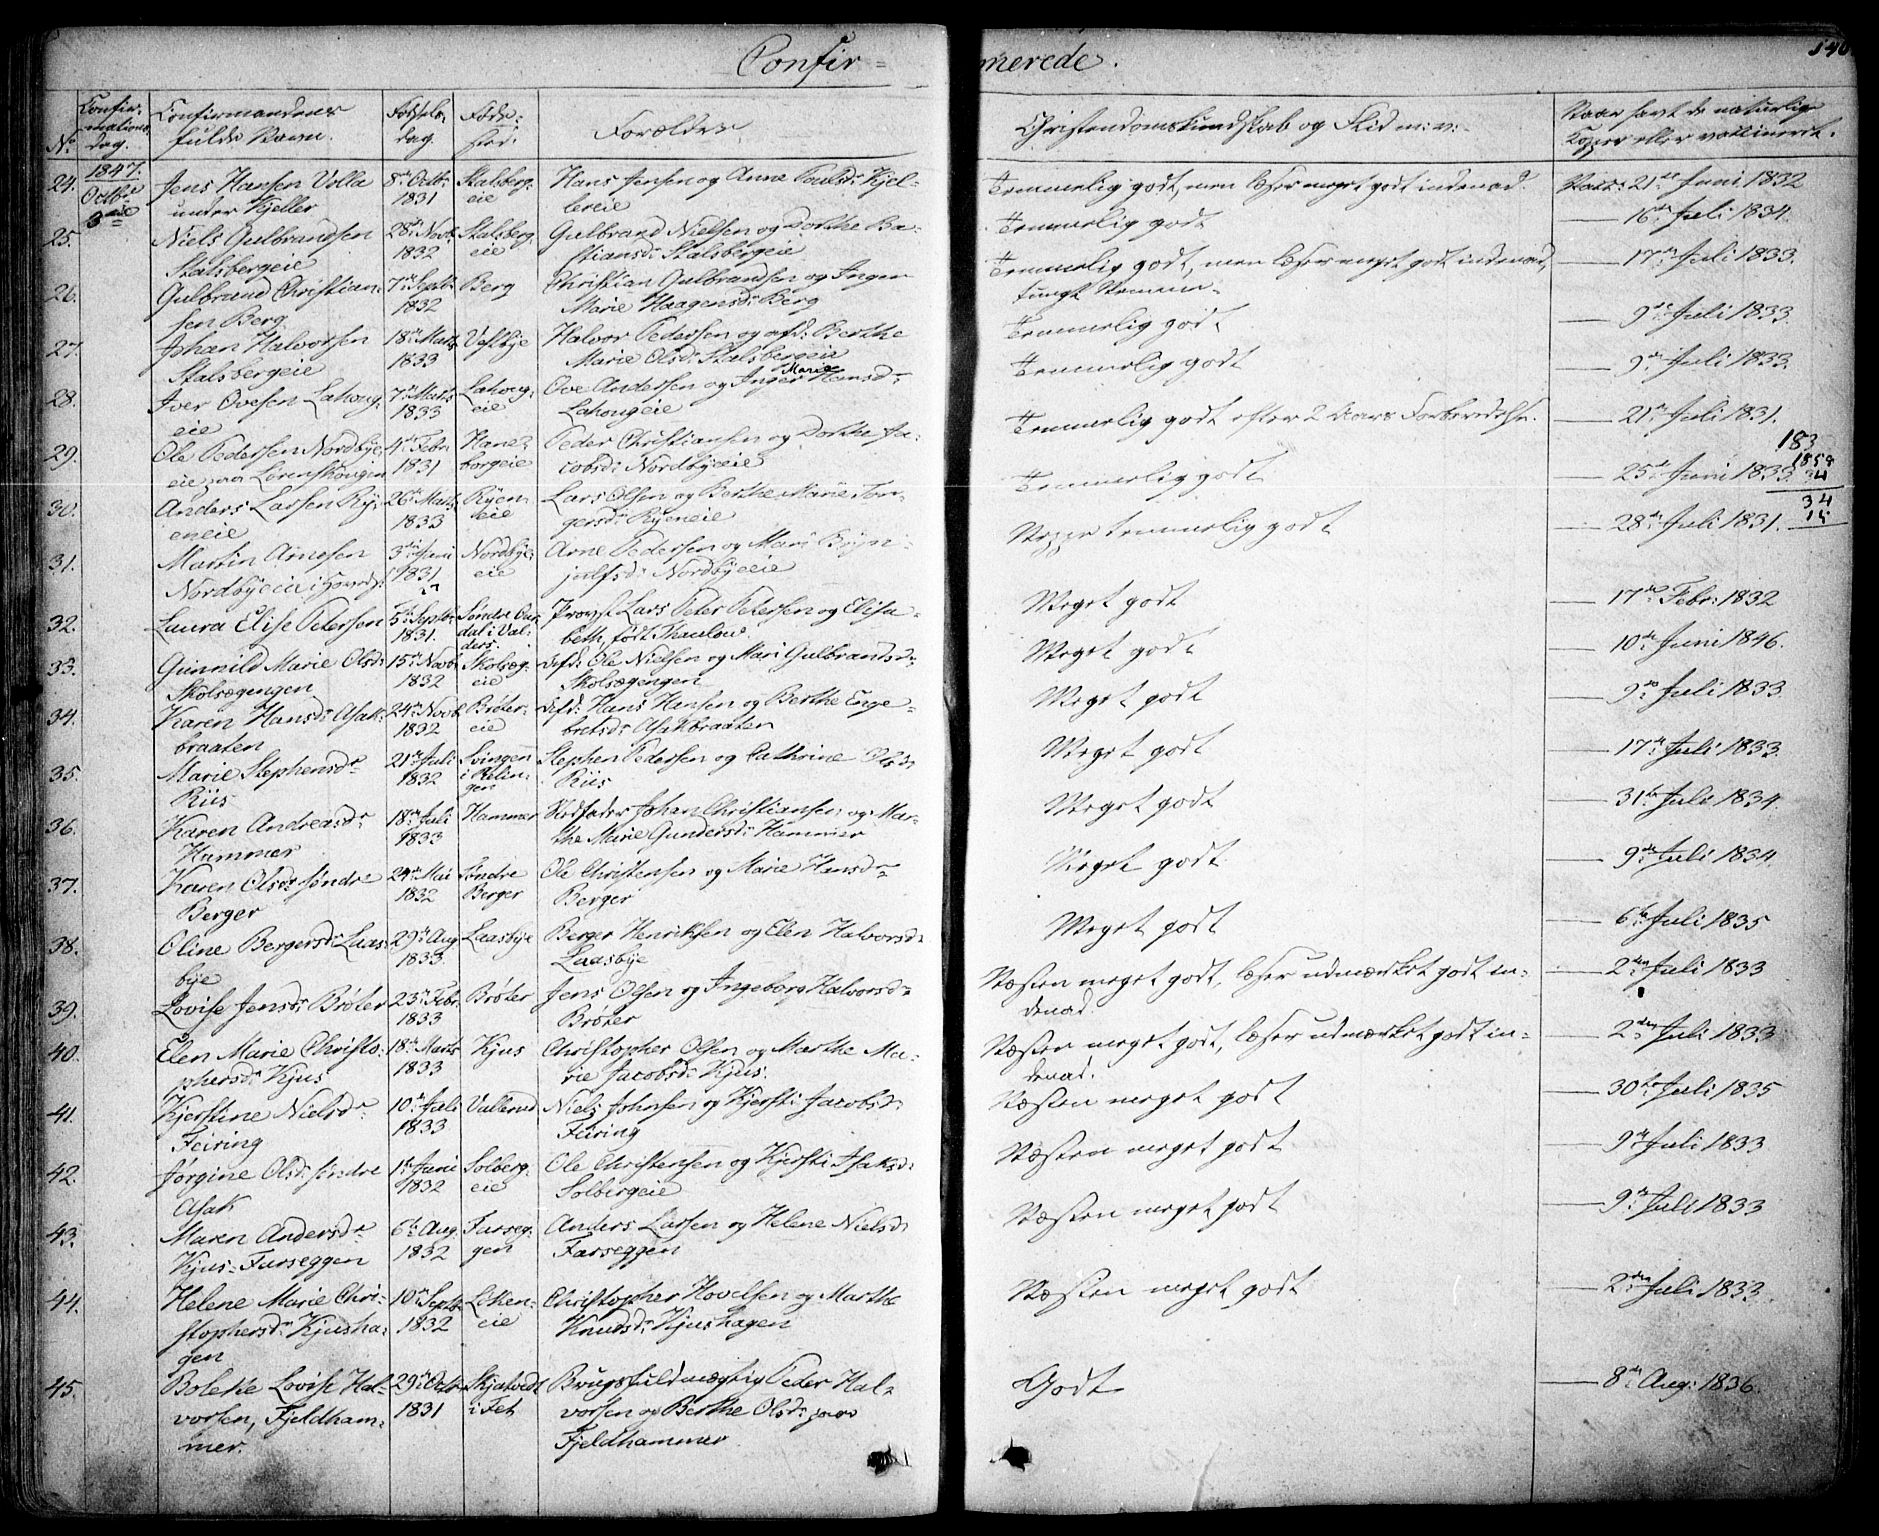 Confir=
merede.
140
No.
Confir-
mations
dag.
Confirmandens
fulde Navn.
Fødsels-
dag.
Føde-
sted.
Forældre
Christendomskundskab og Flid m: v:
Naar havt de naturlige
Kopper eller vaccineret.
1847.
Octbr
3die
24.
Jens Hansen Volla
under Kjeller
8de Octb:
1831
Stalsberg-
eie
Hans Jensen og Anne Poulsdr Kjel-
lereie
Temmelig godt, men læser meget godt indenad.
Vacc: 21de Juni 1832
25.
Niels Gulbrandsen
Stalsbergeie
28de Novb:
1832
Stalsberg
eie
Gulbrand Nielsen og Dorthe Ba-
stiansdr Stalsbergeie
Temmelig godt
— 16de Juli 1834.
26.
Gulbrand Christian-
sen Berg
7de Septb:
1832
Berg
Christian Gulbrandsen og Inger
Marie Haagensdr Berg
Temmelig godt, men læser meget godt indenad,
tungt Nemme.
— 17de Juli 1833.
27
Johan Halvorsen
Stalsbergeie
18de Marts
1833
Vestbye
Halvor Pedersen og afd: Berthe
Marie Olsdr Stalsbergeie
Temmelig godt
— 9de Juli 1833.
28.
Iver Ovesen Lahoug-
eie
7de Marts
1833
Lahoug-
eie
Ove Andersen og Inger Marie Hansdr
Lahougeie
Temmelig godt
— 9de Juli 1833.
29.
Ole Pedersen Nordbye-
eie paa Lørenskougen
4de Febr
1831
Hane-
borgeie
Peder Christiansen og Dorthe Ja-
cobsdr Nordbyeeie
Temmelig godt efter 2 Aars Forberedelse.
— 21de Juli 1831.
183
1858
34
34
15
30.
Anders Larsen Ry-
eneie
26de Marts
1833
Ryen-
eie
Lars Olsen og Berthe Marie Ton-
gersdr Ryeneie
Temmelig godt
— 25de Juni 1833.
31.
Martin Arnesen
Nordbyeeie i
3die Juni
1831
Nordbye-
eie
Arne Pedersen og Mari Bryn-
julfsdr Nordbyeeie
Neppe temmelig godt
— 28de Juli 1831.
32.
Laura Elise Petersen
5te Septb:
1831.
Søndre Aur
dal i Val-
ders.
Provst Lars Peter Petersen og Elisa-
beth, født Thaulow.
Meget godt
— 17de Febr: 1832
33.
Gunnild Marie Olsdr
Skolsægengen
15de Novb:
1832
Skolsæg-
eie
Afd: Ole Nielsen og Mari Gulbrandsdr
Skolsægengen
Meget godt
— 10de Juni 1846.
34.
Karen Hansdr Asak-
braaten
24de Novb
1832
Brøter-
eie
Afd: Hans Hansen og Berthe Enge-
bretsdr Asakbraaten
Meget godt
— 9de Juli 1833.
35.
Marie Stephensdr
Riis
21de Juli
1832
Svingen
i Rælin-
gen
Stephen Pedersen og Cathrine Olsdr
Riis
Meget godt
— 17de Juli 1833.
36.
Karen Andreasdr
Hammer
18de Juli
1833
Hammer
Stedfader Johan Christiansen og Mar-
the Marie Gundersdr Hammer
Meget godt
— 31te Juli 1834.
37.
Karen Olsdr søndre
Berger
24de Mai
1832
Søndre
Berger
Ole Christensen og Marie Hansdr
Berger
Meget godt
— 9de Juli 1834
38.
Oline Bergersdr Laas-
bye
29de Aug
1833.
Laasbye
Berger Henriksen og Elen Halvorsdr
Laasbye
Meget godt
— 6te Juli 1835
39.
Lovise Jensdr Brøter
23de Febr:
1833
Brøter
Jens Olsen og Ingeborg Halvorsdr
Brøter
Næsten meget godt, læser udmærket godt in-
denad.
— 2den Juli 1833
40.
Elen Marie Christo-
phersdr Kjus
18de Marts
1833
Kjus
Christopher Olsen og Marthe Ma-
rie Jacobsdr Kjus.
Næsten meget godt, læser udmærket godt in-
denad.
— 2den Juli 1833
41.
Kjerstine Nielsdr
Feiring
10de Juli
1833
Vallerud
Niels Johnsen og Kjersti Jacobsdr
Feiring
Næsten meget godt
— 30te Juli 1835
42.
Jørgine Olsdr søndre
Asak
1ste Junie
1832
Solberg-
eie
Ole Christensen og Kjersti Isaksdr
Solbergeie
Næsten meget godt
— 9de Juli 1833
43.
Maren Andersdr
Kjus-Farseggen
6te Aug.
1832
Farseg-
gen
Anders Larsen og Helene Nielsdr
Farseggen
Næsten meget godt
— 9de Juli 1833
44.
Helene Marie Chri-
stophersdr Kjusha-
gen
10de Septb:
1832
Løken-
eie
Christopher Hovelsen og Marthe
Knudsdr Kjushagen
Næsten meget godt
— 2den Juli 1833.
45.
Bolette Lovise Hal-
vorsen, Fjeldham-
mer.
29de Octb
1831
Skjatvedt
i Fet
Brugsfuldmægtig Peder Hal-
vorsen og Berthe Olsdr paa
Fjeldhammer
Godt
— 8de Aug: 1836.